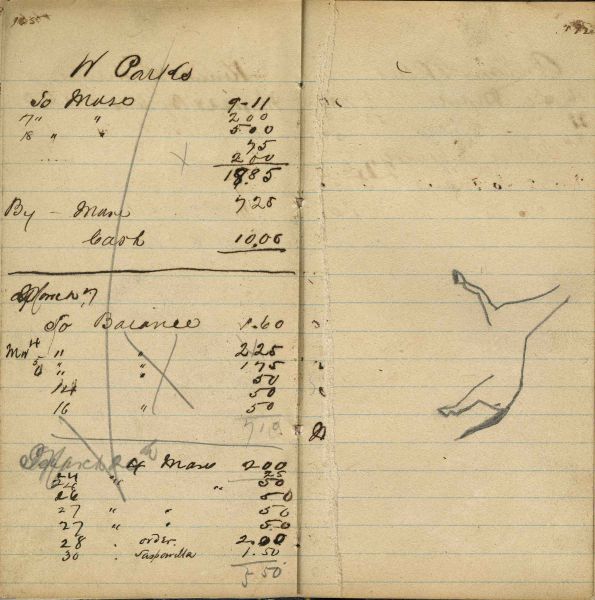 W Parks
To Mase 9-11
17 " " 200
18 " " 500
75
200
18.85
By - Mase 725
Cash 10.00
March 7
To Balance 1.60
" " 225
5 " " 175
14 50
16 " 50
710
March 200
24 25
50
26 50
27 " " 50
27 " " 50
28 " order. 2.00
30 . Sasparilla 1.50
5 50